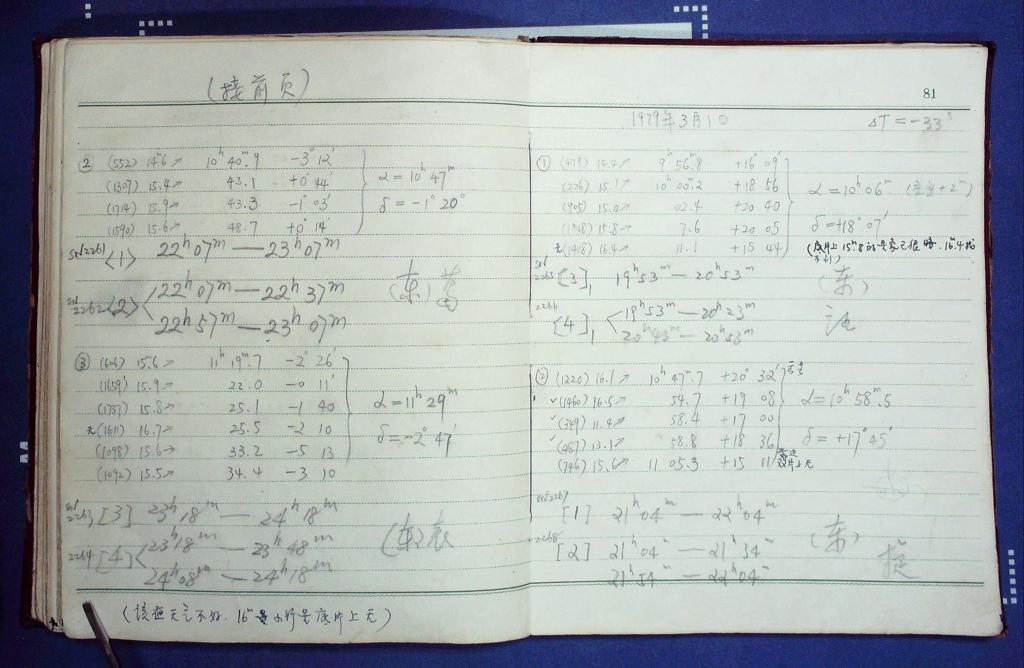 (接前页)
② (552) 14ᵐ6↗ 10ʰ40ᵐ.9 -3°12′
(1307) 15.4↗ 43.1 +0 44′
(1714) 15.9↗ 43.3 -1°03′
(1590) 15.6↗ 48.7 +0°14′
α=10ʰ47ᵐ
δ=-1°20′
2261 <1> 22ʰ07ᵐ—23ʰ07ᵐ
2262 <2> 22ʰ07ᵐ—22ʰ37ᵐ
22ʰ57ᵐ—23ʰ07ᵐ
(东)
③ (606) 15.6↗ 11ʰ19ᵐ.7 -2°26′
(1659) 15.9↗ 22.0 -0 11′
(1737) 15.8↗ 25.1 -1 40
无(1611) 16.7↗ 25.5 -2 10
(1098) 15.6↗ 33.2 -5 13
(1092) 15.5↗ 34.4 -3 10
α=11ʰ29ᵐ
δ=-2°47′
2263 [3] 23ʰ18ᵐ—24ʰ18ᵐ
2264 [4] 23ʰ18ᵐ—23ʰ48ᵐ
24ʰ08ᵐ—24ʰ18ᵐ
(东)
(该夜天气不好. 16ᵐ小行星底片上无)
81
1979年3月1日 ΔT=-33ˢ
① (479) 14.4↗ 9ʰ56ᵐ.8 +16°09′
(226) 15.1↗ 10ʰ00ᵐ.2 +18 56
(905) 15.0↗ 02.4 +20 40
(1948) 15.8↗ 7.6 +20 05
无(1418) 16.4↗ 11.1 +15 44
α=10ʰ06ᵐ
δ=+18°07′
2265 [3] 19ʰ53ᵐ—20ʰ53ᵐ
2266 [4] 19ʰ53ᵐ—20ʰ23ᵐ
20ʰ43ᵐ—20ʰ53ᵐ
(东)
② (1220) 16.1↗ 10ʰ47ᵐ.7 +20°32′
✓(1460) 16.5↗ 54.7 +19 08
✓(349) 11.4↗ 58.4 +17 00
✓(487) 13.1↗ 58.8 +18 36
(746) 15.6↗ 11 05.3 +15 11
α=10ʰ58ᵐ.5
δ=+17°45′
2267 [1] 21ʰ04ᵐ—22ʰ04ᵐ
2268 [2] 21ʰ04ᵐ—21ʰ34ᵐ
21ʰ54ᵐ—22ʰ04ᵐ
(东)